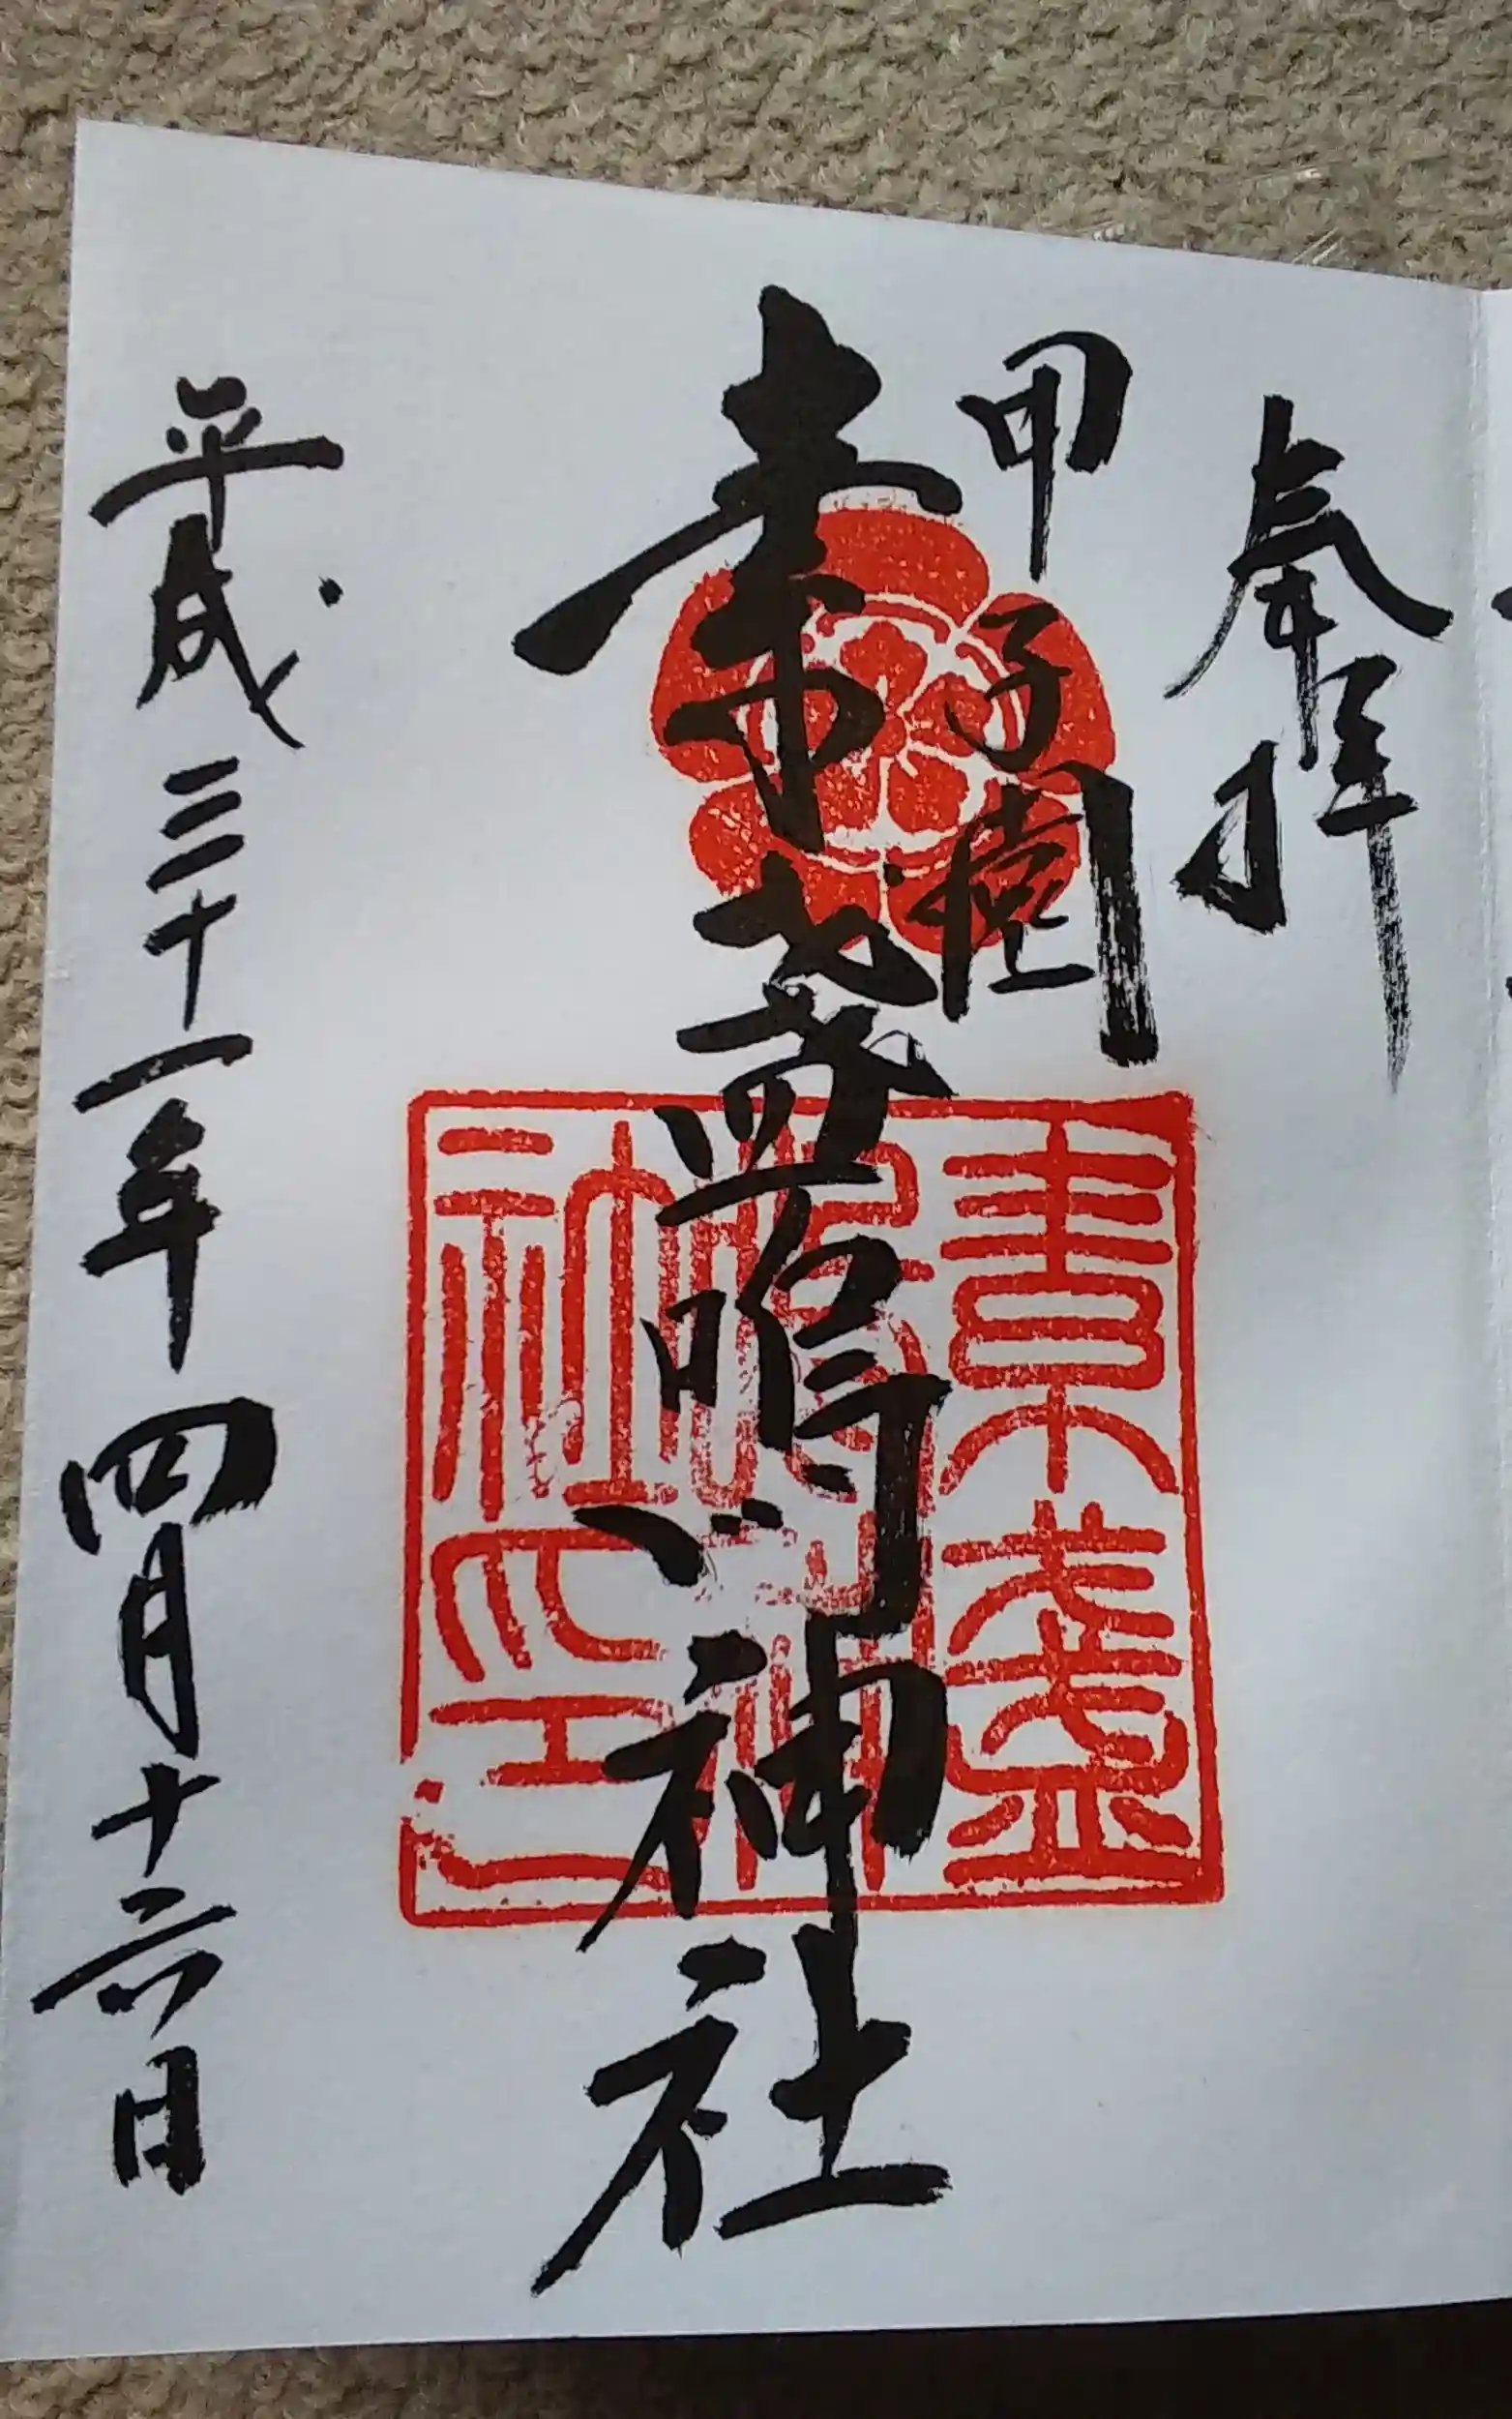 奉拝
甲子園
素盞嗚神社
平成三十一年四月十六日
素盞
嗚神
社之印